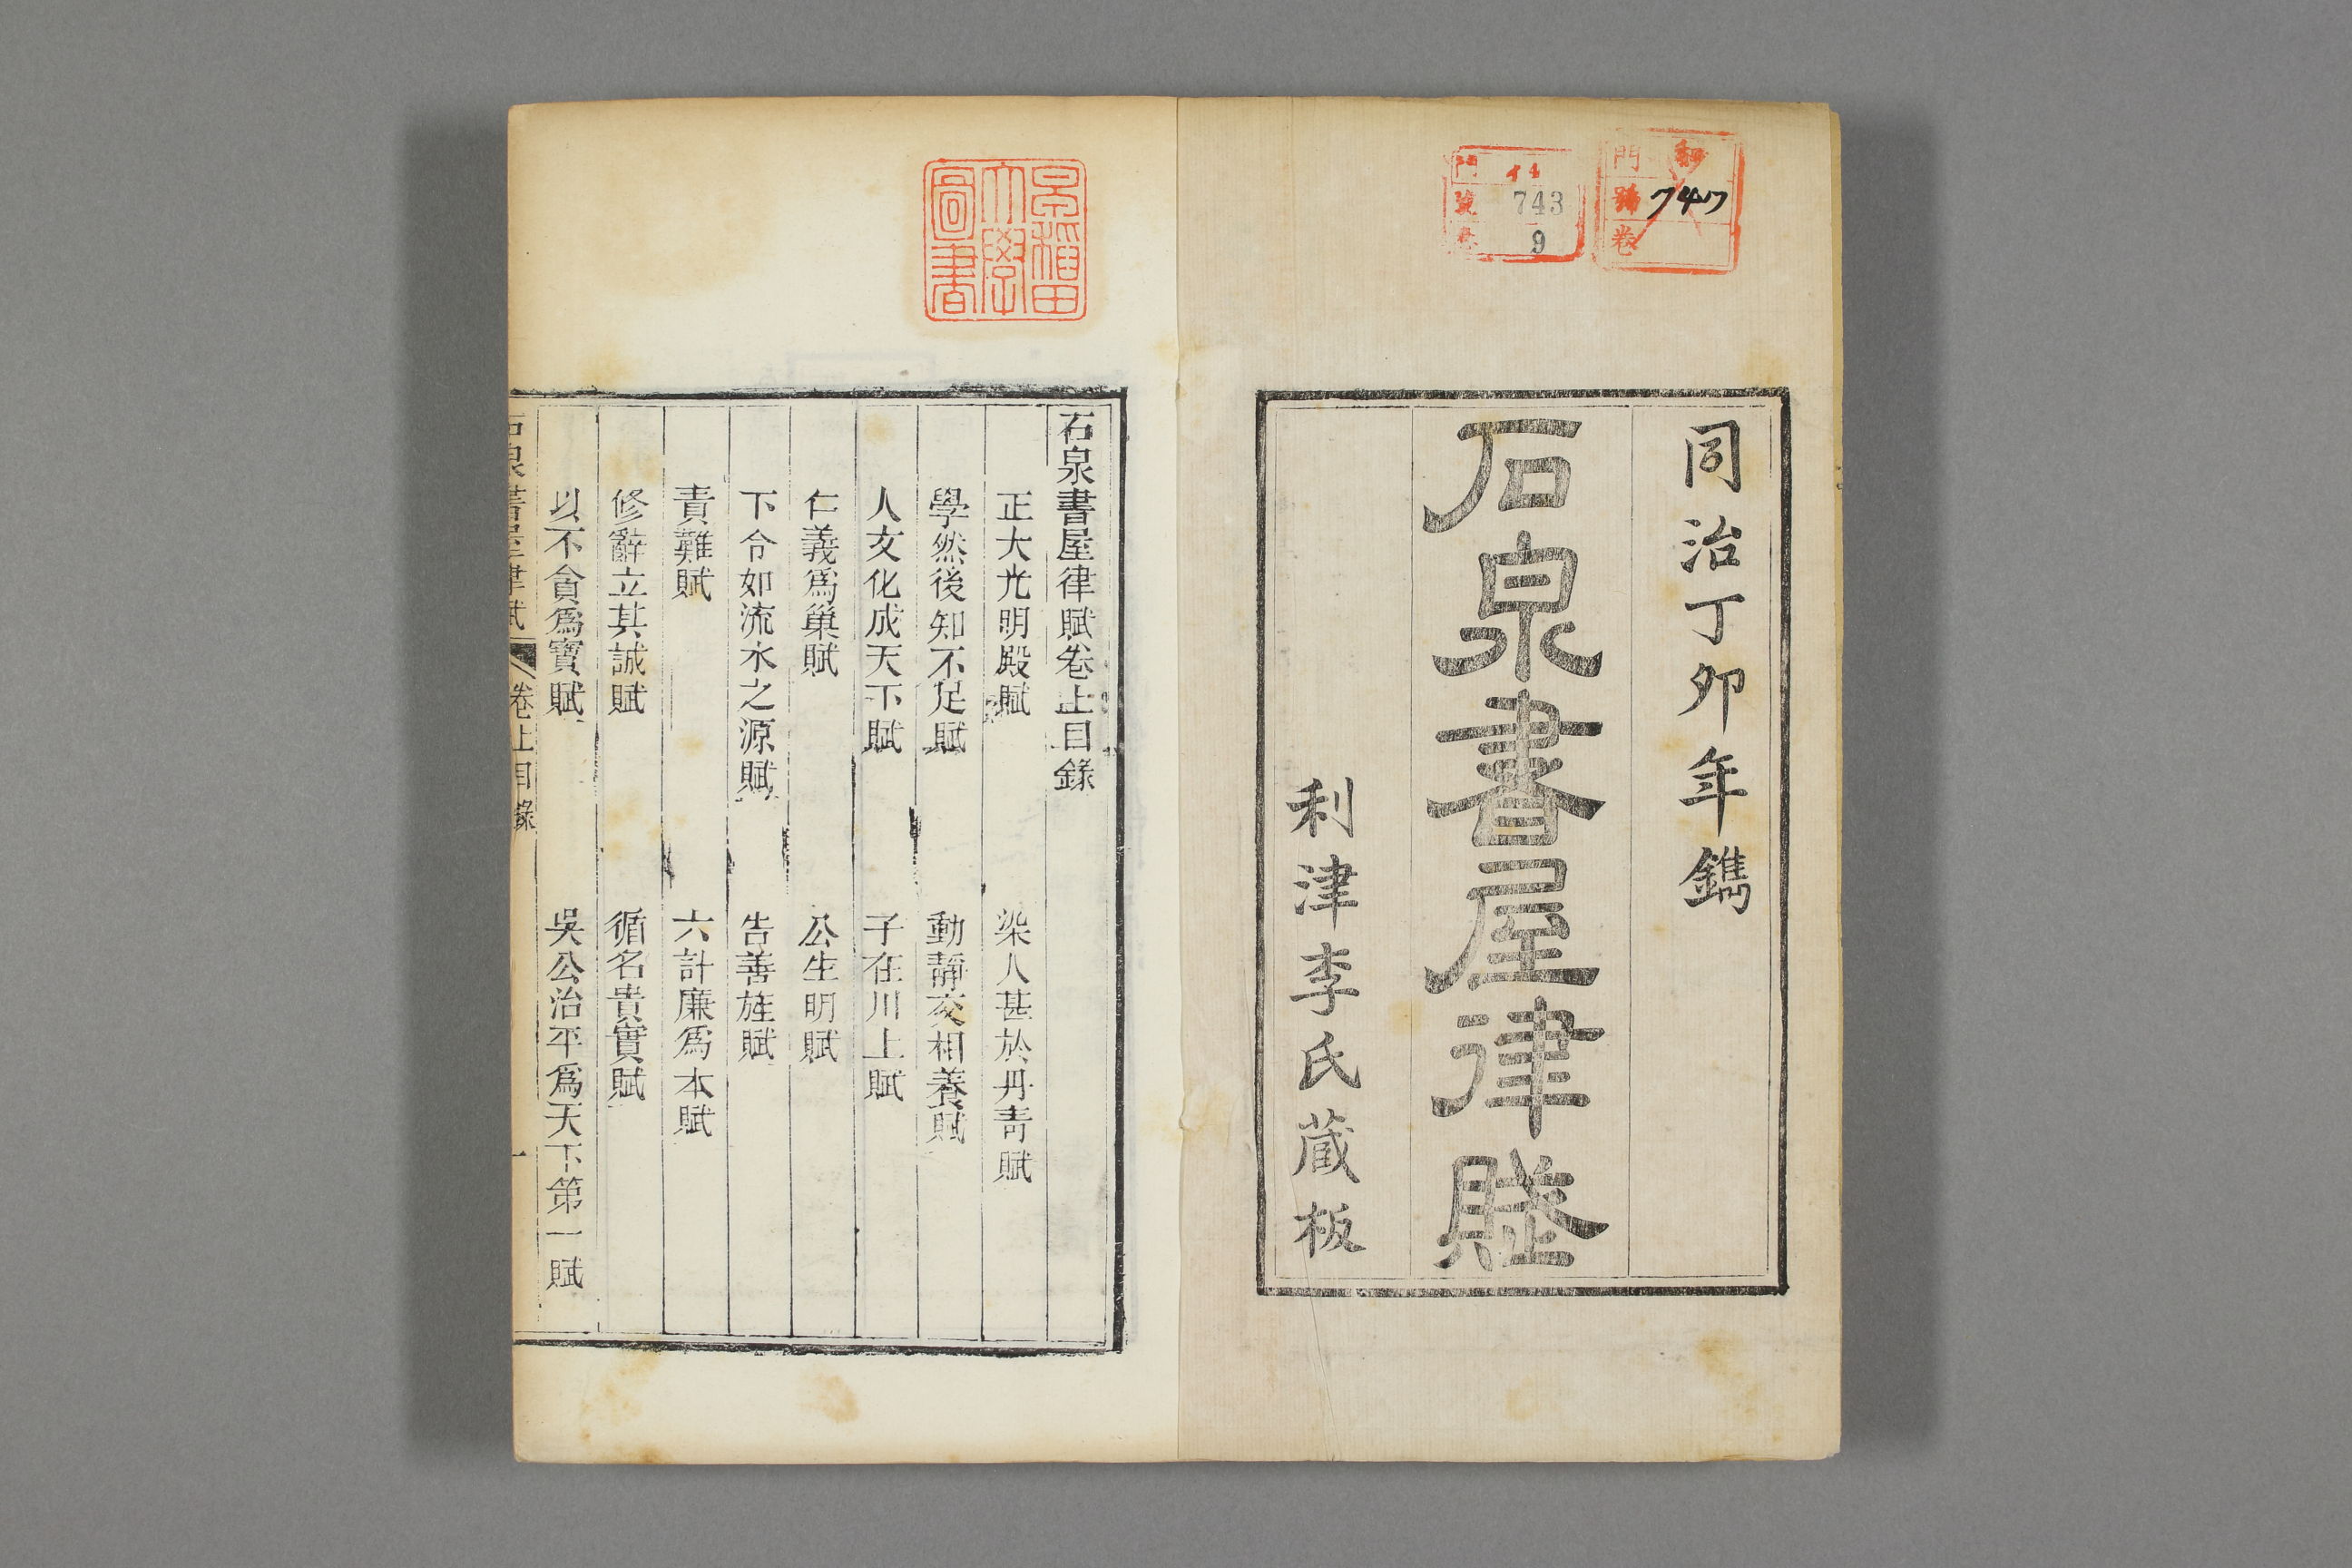 門 イ4
號 743
巻 9
門
號 747
卷
同治丁卯年鐫
石泉書屋律賦
利津李氏藏板
早稲田
大學
圖書
石泉書屋律賦卷上目錄
正大光明殿賦 染人甚於丹青賦
學然後知不足賦 動靜交相養賦
人文化成天下賦 子在川上賦
仁義爲巢賦 公生明賦
下令如流水之源賦 告善旌賦
責難賦 六計廉爲本賦
修辭立其誠賦 循名責實賦
以不貪爲寶賦 吳公治平爲天下第一賦
石泉書屋律賦 卷上目錄 一